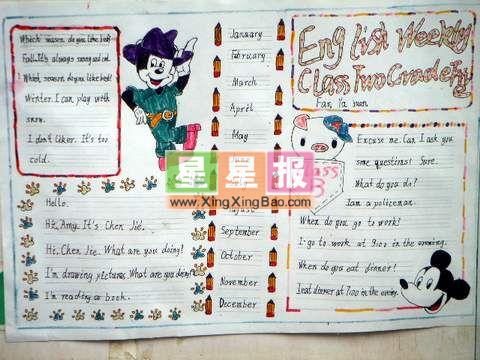 Which season do you like best?
Fall. It's always sunny and cool.
Which season do you like best?
Winter. I can play with
snow.
I don't like r. It's too
cold.
Hello.
Hi, Amy. It's Chen Jie.
Hi, Chen Jie. What are you doing?
I'm drawing pictures. What are you doing?
I'm reading a book.
January
February
March
April
May
August
September
October
November
December
English Weekly
Class Two Grade Five
Fan Ya
Class
3
Excuse me. Can I ask you
some questions? Sure.
What do you do?
I am a policeman.
When do you go to work?
I go to work at 9:00 in the evening.
When do you eat dinner?
I eat dinner at 7:00 in the evening.
星星报
www.XingXingBao.com